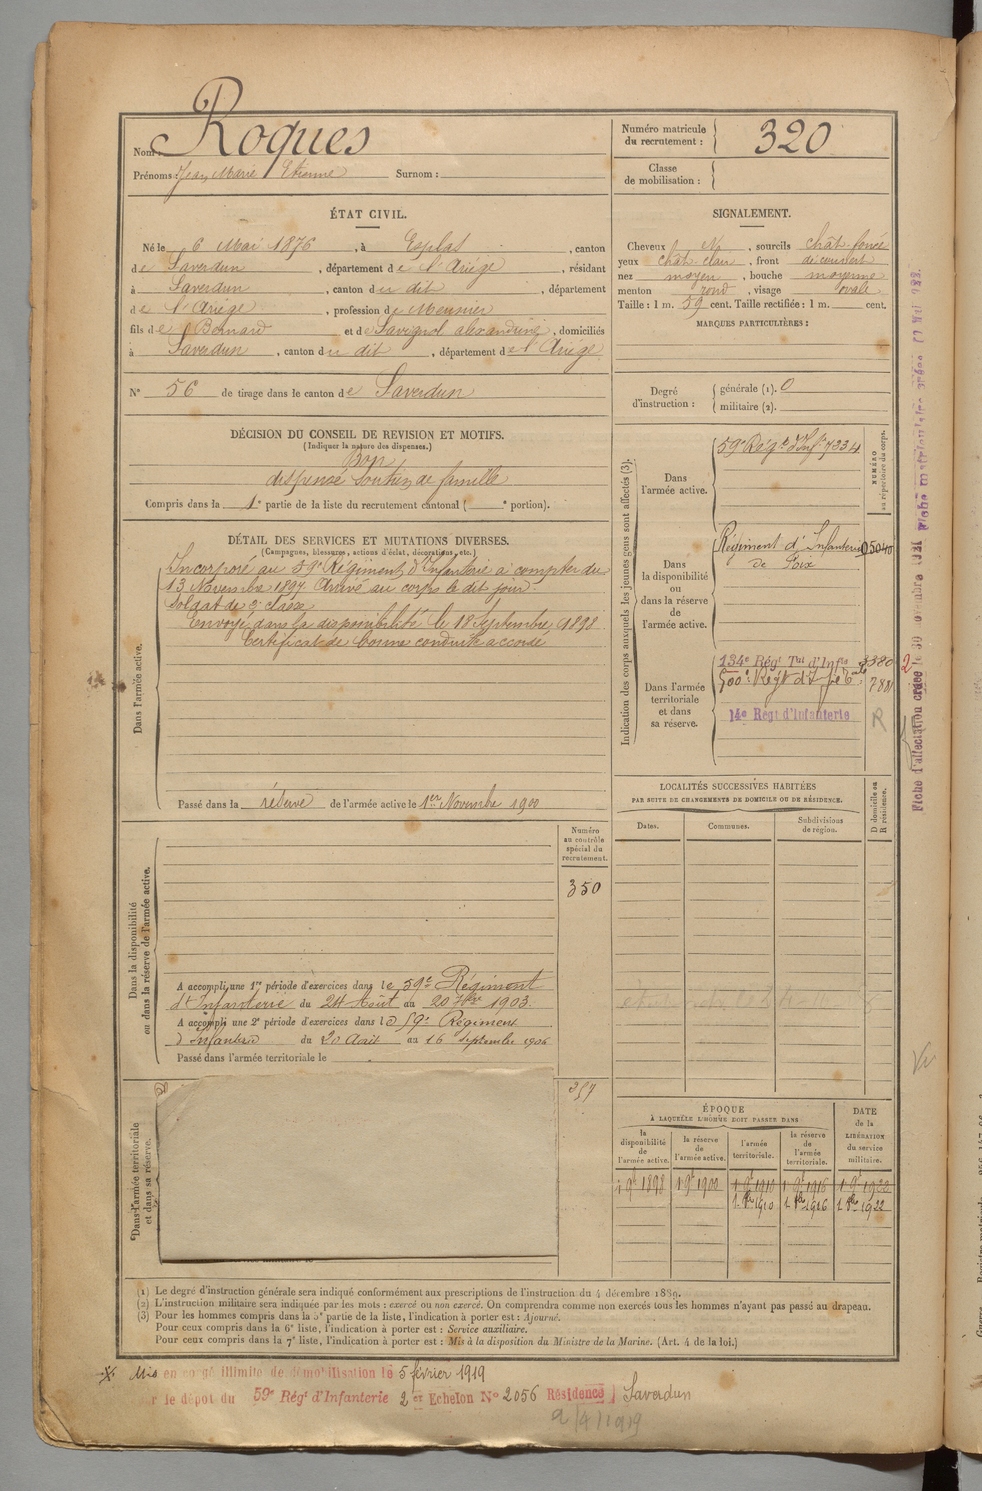 Nom : Roques
Prénoms : Jean Marie Etienne Surnom :
Numéro matricule
du recrutement : 320
Classe
de mobilisation :
ÉTAT CIVIL.
Né le 6 Mai 1876, à Esplas, canton
de Saverdun, département de l'Ariège, résidant
à Saverdun, canton du dit, département
de l'Ariège, profession de Meunier
fils de Bernard et de Savignol alexandrine, domiciliés
à Saverdun, canton du dit, département de l'Ariège
N° 56 de tirage dans le canton de Saverdun
SIGNALEMENT.
Cheveux N, sourcils chât. foncé
yeux chât. clair, front découvert
nez moyen, bouche moyenne
menton rond, visage ovale
Taille : 1 m. 59 cent. Taille rectifiée : 1 m. cent.
MARQUES PARTICULIÈRES :
Degré
d'instruction :
générale (1). 0
militaire (2).
DÉCISION DU CONSEIL DE REVISION ET MOTIFS.
(Indiquer la nature des dispenses.)
Bon
dispensé soutien de famille
Compris dans la 1e partie de la liste du recrutement cantonal ( e portion).
DÉTAIL DES SERVICES ET MUTATIONS DIVERSES.
(Campagnes, blessures, actions d'éclat, décorations, etc.)
Dans l'armée active.
Incorporé au 59e Régiment d'Infanterie à compter du
13 Novembre 1897. Arrivé au corps le dit jour.
Soldat de 2e classe
Envoyé dans la disponibilité le 18 Septembre 1898
Certificat de bonne conduite accordé
Passé dans la réserve de l'armée active le 1er Novembre 1900
Indication des corps auxquels les jeunes gens sont affectés (3).
NUMÉRO
au répertoire du corps.
Dans
l'armée active.
59e Régt d'Inf. 7334
Dans
la disponibilité
ou
dans la réserve
de
l'armée active.
Régiment d'Infanterie 05040
de Foix
Dans l'armée
territoriale
et dans
sa réserve.
134e Régt Tal d'Infie 3380
500e Régt d'Infie Tale 7881
14e Régt d'Infanterie R
2
LOCALITÉS SUCCESSIVES HABITÉES
PAR SUITE DE CHANGEMENTS DE DOMICILE OU DE RÉSIDENCE.
Dates.
Communes.
Subdivisions
de région.
D domicile ou
R résidence.
Dans la disponibilité
ou dans la réserve de l'armée active.
Numéro
au contrôle
spécial du
recrutement.
350
A accompli une 1re période d'exercices dans le 59e Régiment
d'Infanterie du 24 Août au 20 7bre 1903.
A accompli une 2e période d'exercices dans le 59e Régiment
d'Infanterie du 20 Août au 16 septembre 1906
Passé dans l'armée territoriale le
Dans l'armée territoriale
et dans sa réserve.
257
ÉPOQUE
À LAQUELLE L'HOMME DOIT PASSER DANS
DATE
de la
LIBÉRATION
du service
militaire.
la
disponibilité
de
l'armée active.
la réserve
de
l'armée active.
l'armée
territoriale.
la réserve
de
l'armée
territoriale.
1 9e 1898 1 9e 1900 1 9e 1910 1 9e 1916 1 9e 1922
1. 8bre 1910 1. 8bre 1916 1. 8bre 1922
(1) Le degré d'instruction générale sera indiqué conformément aux prescriptions de l'instruction du 4 décembre 1889.
(2) L'instruction militaire sera indiquée par les mots : exercé ou non exercé. On comprendra comme non exercés tous les hommes n'ayant pas passé au drapeau.
(3) Pour les hommes compris dans la 5e partie de la liste, l'indication à porter est : Ajourné.
Pour ceux compris dans la 6e liste, l'indication à porter est : Service auxiliaire.
Pour ceux compris dans la 7e liste, l'indication à porter est : Mis à la disposition du Ministre de la Marine. (Art. 4 de la loi.)
Mis en congé illimité de démobilisation le 5 février 1919
r le dépot du 59e Régt d'Infanterie 2 er Echelon N° 2056 Résidence Saverdun
2/4/1919